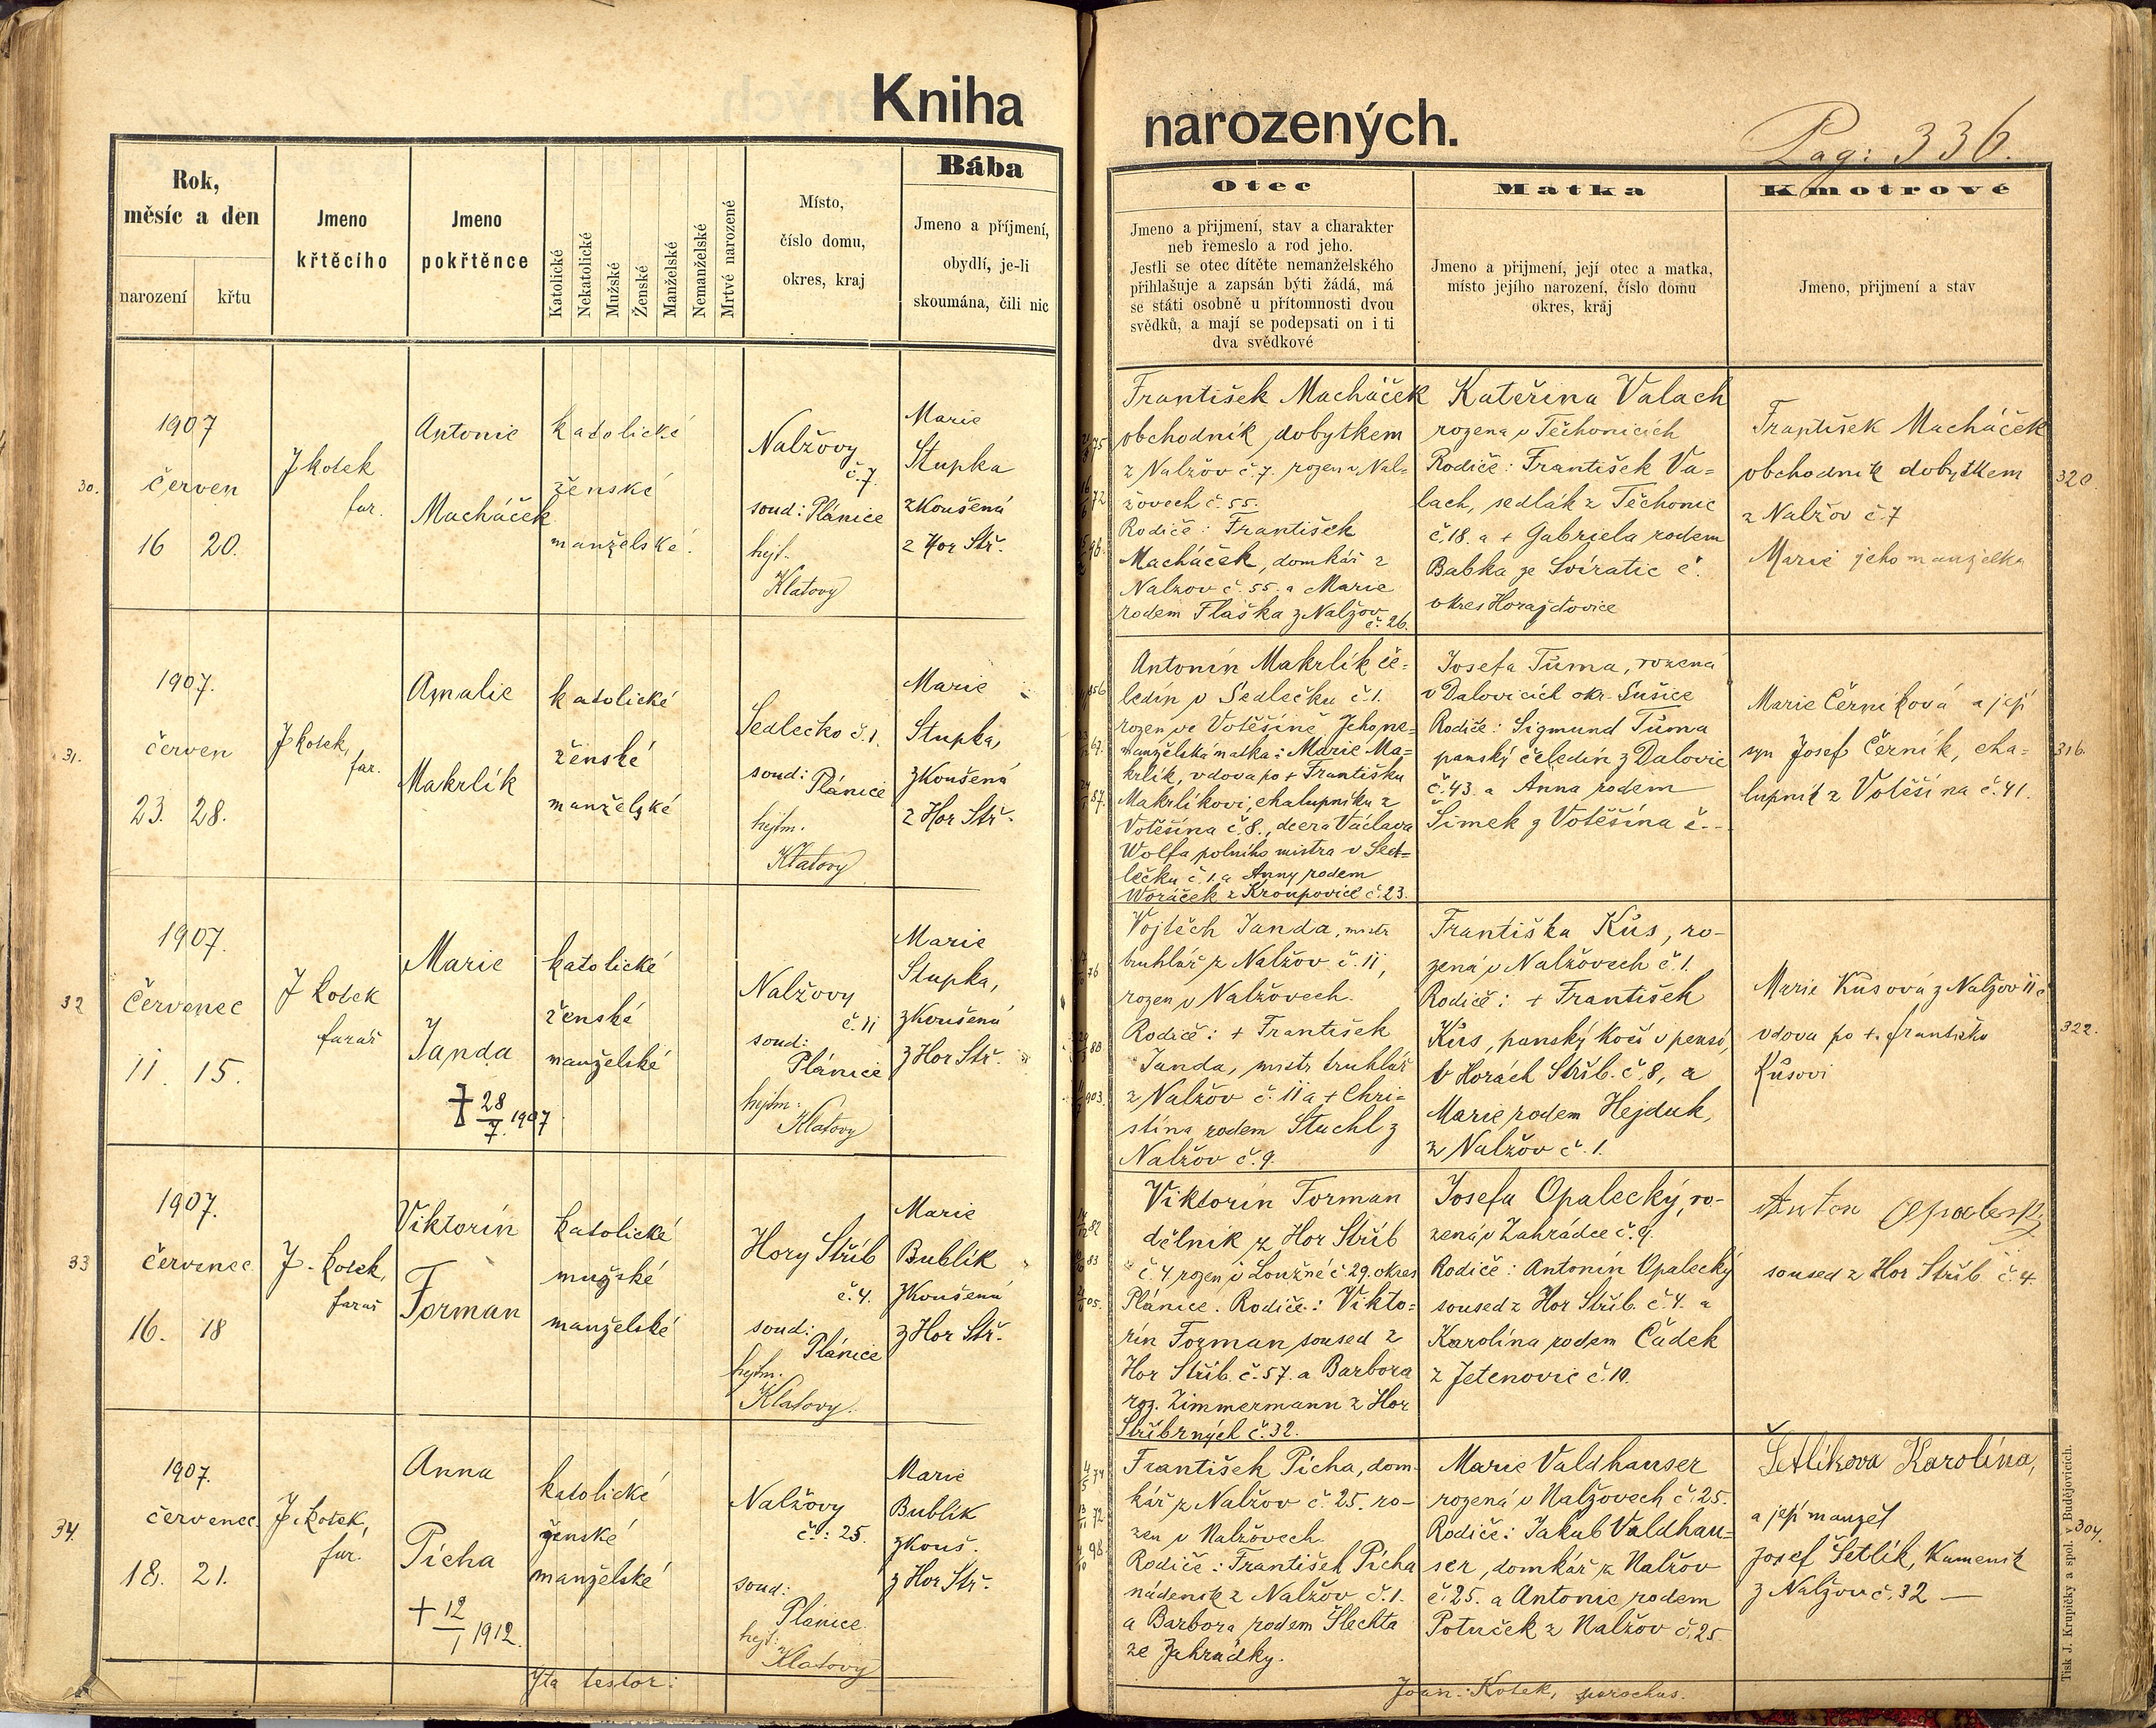 Kniha
narozených.
Pag: 336.
Rok,
měsíc a den
narození
křtu
Jmeno
křtěcího
Jmeno
pokřtěnce
Katolické
Nekatolické
Mužské
Ženské
Manželské
Nemanželské
Mrtvé narozené
Místo,
číslo domu,
okres, kraj
Bába
Jmeno a příjmení,
obydlí, je-li
skoumána, čili nic
Otec
Jmeno a přijmení, stav a charakter
neb řemeslo a rod jeho.
Jestli se otec dítěte nemanželského
přihlašuje a zapsán býti žádá, má
se státi osobně u přítomnosti dvou
svědků, a mají se podepsati on i ti
dva svědkové
Matka
Jmeno a přijmení, její otec a matka,
místo jejího narození, číslo domu
okres, kráj
Kmotrové
Jmeno, přijmení a stav
30.
1907
červen
16 20.
J Kotek
far.
Antonie
Macháček
katolické
ženské
manželské.
Nalžovy
č. 7.
soud: Plánice
hejt.
Klatovy
Marie
Stupka
zkoušená
z Hor Stř.
František Macháček
obchodník dobytkem
z Nalžov č 7. rozen v Nal=
žovech č. 55.
Rodiče: František
Macháček, domkář z
Nalžov č. 55. a Marie
rodem Flaška z Nalžov
č. 26.
Kateřina Valach
rozena v Těchonicích
Rodiče: František Va=
lach, sedlák z Těchonic
č. 18. a + Gabriela rodem
Babka ze Svíratic č.
okres Horažďovice
František Macháček
obchodník dobytkem
z Nalžov č. 7
Marie jeho manželka
320.
31.
1907.
červen
23. 28.
J Kotek,
far.
Amalie
Makrlík
katolické
ženské
manželské
Sedlečko č. 1.
soud:
Plánice
hejtm.
Klatovy
Marie
Stupka,
zkoušená
z Hor Stř.
Antonín Makrlík če=
ledín v Sedlečku č. 1.
rozen ve Votěšíně. Jeho ne=
manželská matka: Marie Ma=
krlík, vdova po + Františku
Makrlíkovi, chalupníku z
Votěšína č. 8., dcera Václava
Wolfa polního mistra v Sed=
lečku č. 1. a Anny rodem
Woráček z Kroupovic č. 23.
Josefa Tůma, rozená
v Dalovicích okr. Sušice
Rodiče: Sigmund Tůma
panský čeledín z Dalovic
č. 43. a Anna rodem
Šimek z Votěšína č. -
Marie Černíková a její
syn Josef Černík, cha=
lupník z Votěšína č. 41.
316.
32
1907.
Červenec
11. 15.
J Kotek
farář
Marie
Janda
† 28/7. 1907
katolické
ženské
manželské
Nalžovy
č. 11
soud:
Plánice
hejtm.
Klatovy
Marie
Stupka,
zkoušená
z Hor Stř.
Vojtěch Janda, mistr
truhlář z Nalžov č. 11,
rozen v Nalžovech.
Rodiče: + František
Janda, mistr truhlář
z Nalžov č. 11 a + Chri=
stina rodem Stuchl z
Nalžov č. 9.
Františka Kůs, ro-
zená v Nalžovech č. 1.
Rodiče: + František
Kůs, panský kočí v pensi,
v Horách Stříb. č. 8, a
Marie rodem Hejduk,
z Nalžov č. 1.
Marie Kůsová z Nalžov 11 č
vdova po +. Františku
Kůsovi
322.
33
1907.
červenec
16. 18
J. Kotek,
farář
Viktorín
Forman
katolické
mužské
manželské
Hory Stříb
č. 4.
soud:
Plánice
hejtm.
Klatovy.
Marie
Bublík
zkoušená
z Hor Stř.
Viktorín Forman
dělník z Hor Stříb
č. 4 rozen v Loužné č. 29. okres
Plánice. Rodiče: Vikto=
rín Forman soused z
Hor Stříb. č. 57. a Barbora
roz. Zimmermann z Hor
Stříbrných č. 32.
Josefa Opalecký, ro-
zená v Zahrádce č. 9.
Rodiče: Antonín Opalecký
soused z Hor Stříb. č. 4. a
Karolína rodem Čadek
z Jetenovic č. 10.
Anton Opalecky
soused z Hor Stříb. č. 4
34.
1907.
červenec.
18. 21.
J. Kotek,
far.
Anna
Pícha
+ 12/1 1912.
katolické
ženské
manželské
Nalžovy
č.: 25.
soud:
Plánice
hejt:
Klatovy
Marie
Bublík
zkouš.
z Hor Stř.
František Pícha, dom-
kář z Nalžov č. 25. ro-
zen v Nalžovech.
Rodiče: František Pícha
nádeník z Nalžov č. 1.
a Barbora rodem Šlechta
ze Zahrádky.
Marie Valdhauser
rozená v Nalžovech č. 25.
Rodiče: Jakub Valdhau=
ser, domkář z Nalžov
č. 25. a Antonie rodem
Potuček z Nalžov č. 25
Šetlíkova Karolína,
a její manžel
Josef Šetlík, Kameník
z Nalžov č. 32 —
304.
Ita testor:
Joan: Kotek, parochus.
Tisk J. Krupičky a spol. v Budějovicích.